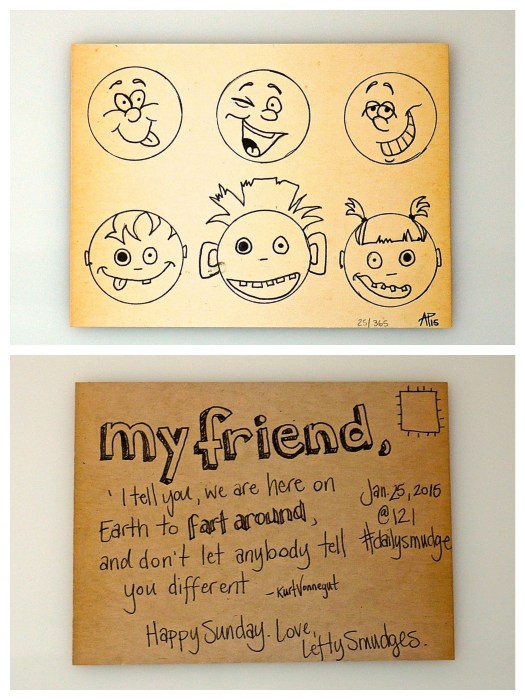 25/365 AP15
my friend,
'I tell you, we are here on
Earth to fart around,
and don't let anybody tell
you different - Kurt Vonnegut
Jan. 25, 2015
@121
#dailysmudge
Happy Sunday. Love,
Lefty Smudges.